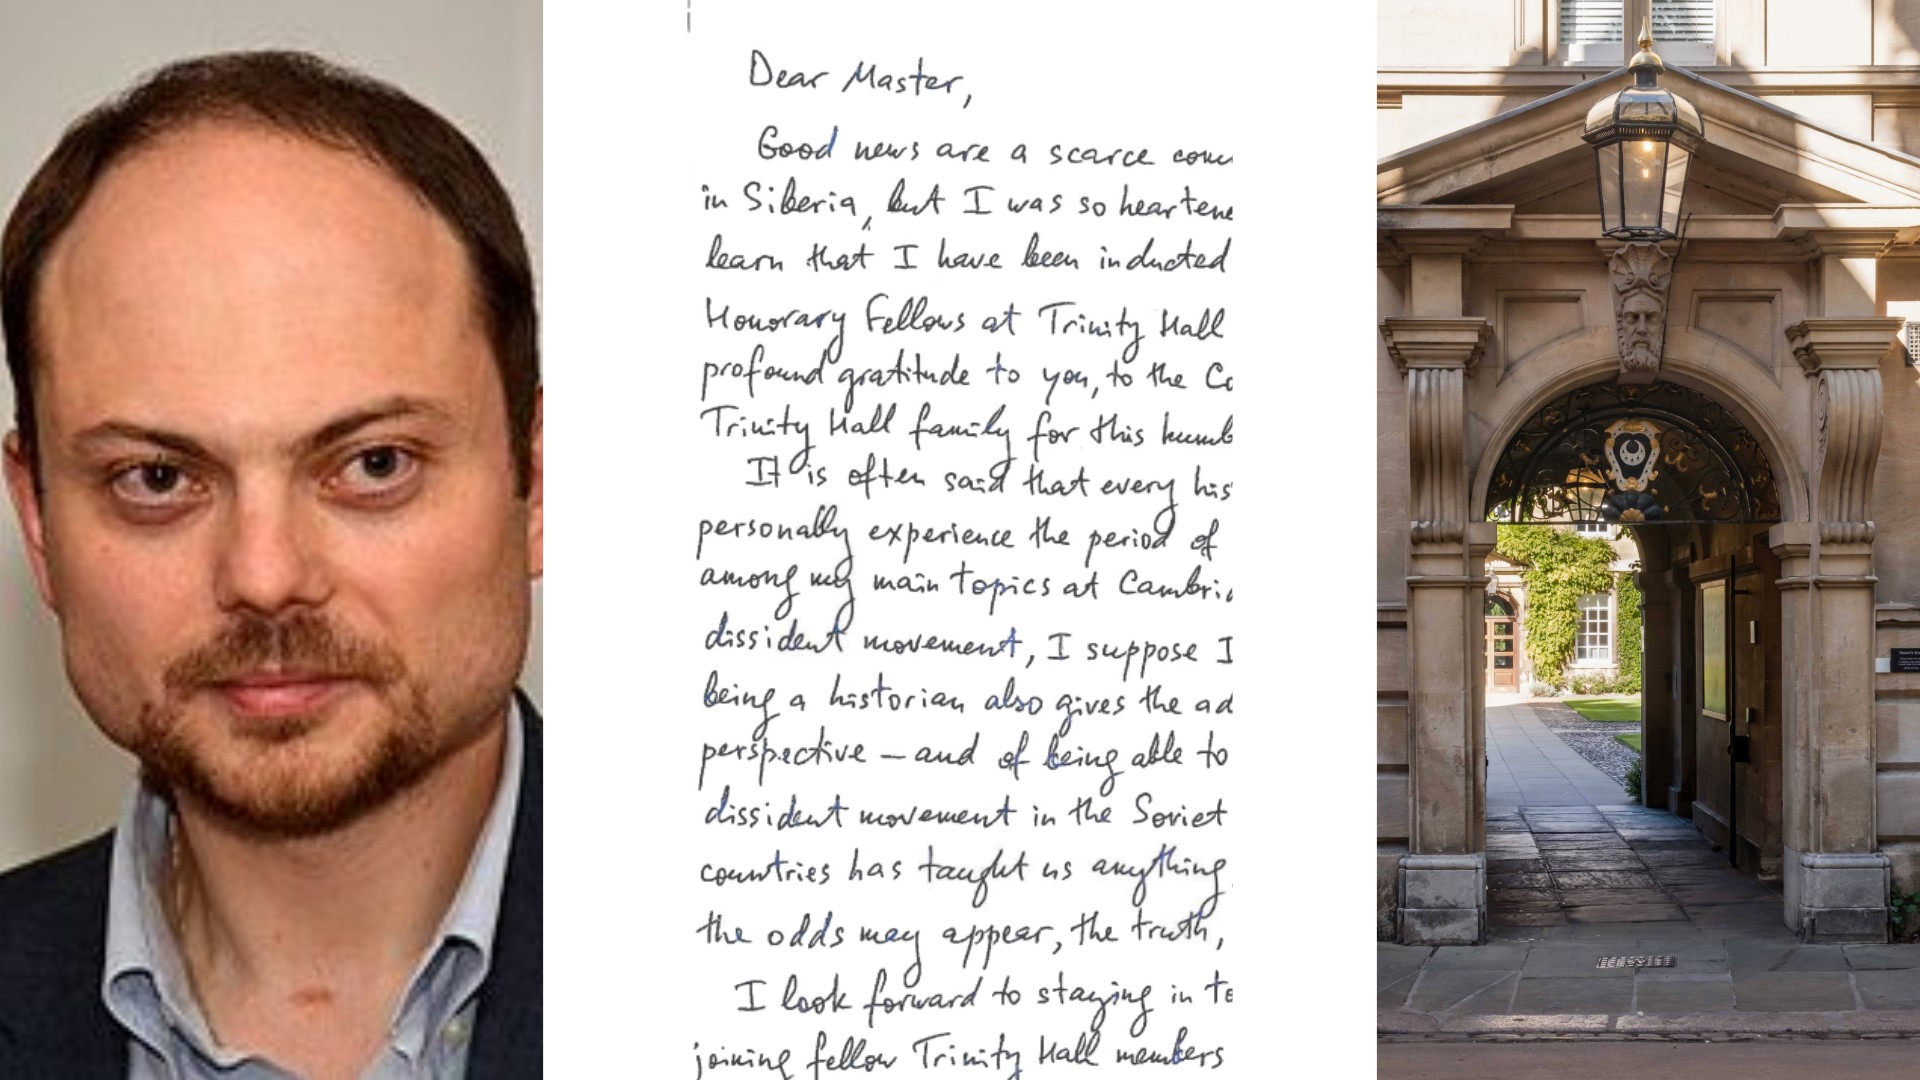 Dear Master,
Good news are a scarce com
in Siberia, but I was so heartene
learn that I have been inducted
Honorary Fellows at Trinity Hall
profound gratitude to you, to the Co
Trinity Hall family for this humb
It is often said that every his
personally experience the period of
among my main topics at Cambri
dissident movement, I suppose I
being a historian also gives the ad
perspective – and of being able to
dissident movement in the Soviet
countries has taught us anything
the odds may appear, the truth,
I look forward to staying in to
joining fellow Trinity Hall members